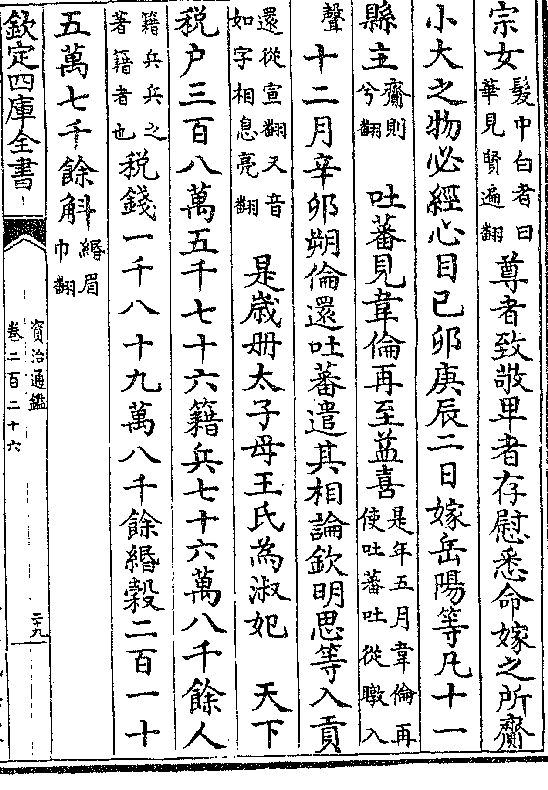 宗女髮中白者曰華見賢遍翻尊者致敬卑者存慰悉命嫁之所齎
小大之物必經心目己卯庚辰二日嫁岳陽等凡十一
縣主齎則兮翻 吐蕃見韋倫再至益喜是年五月韋倫再使吐蕃吐從暾入
聲十二月辛卯朔倫還吐蕃遣其相論欽明思等入貢
還從宣翻又音如字相息亮翻 是歲册太子母王氏為淑妃 天下
税户三百八萬五千七十六籍兵七十六萬八千餘人
籍兵兵之著籍者也税錢一千八十九萬八千餘緡穀二百一十
五萬七千餘斛緡眉巾翻
欽定四庫全書
資治通鑑
卷二百二十六
二九